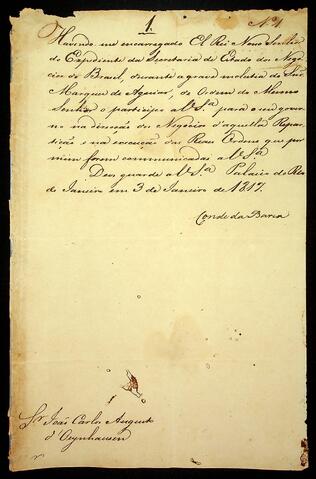 1.
Nº 1
Havendo-me encarregado El Rei Nosso Senhor
do Expediente da Secretaria de Estado dos Nego
cios do Brasil, durante a grave molestia do
Marquez de Aguiar, de Ordem do Mesmo
Senhor o participo a V. Sª. para o seu gover
no na direcção dos Negocios d'aquella Repar
tição e na execução das Reaes Ordens que por
mim forem communicadas a V. Sª.
Deos guarde a V. Sª. Palacio do Rio
de Janeiro em 3 de Janeiro de 1817.
Conde da Barca
Sr. João Carlos Augusto
d'Oeynhausen